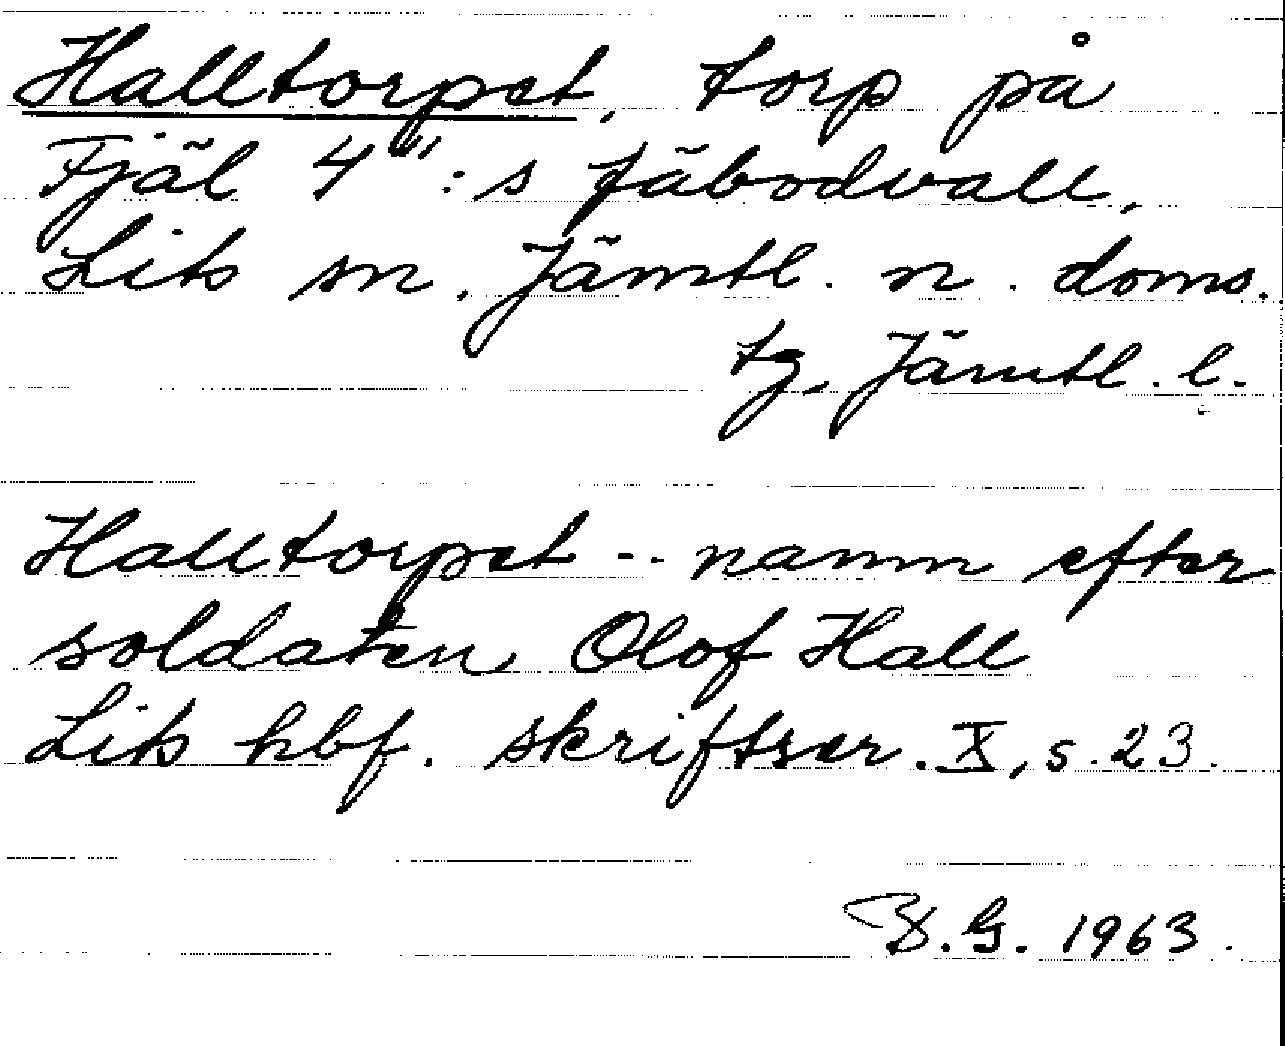 Halltorpet, torp på
Fjäl 4''':s fäbodvall,
Lits sn. Jämtl. n. doms.
tg, Jämtl. l.
Halltorpet -- namn efter
soldaten Olof Hall
Lits hbf. skriftser. X, s. 23.
B.G. 1963.